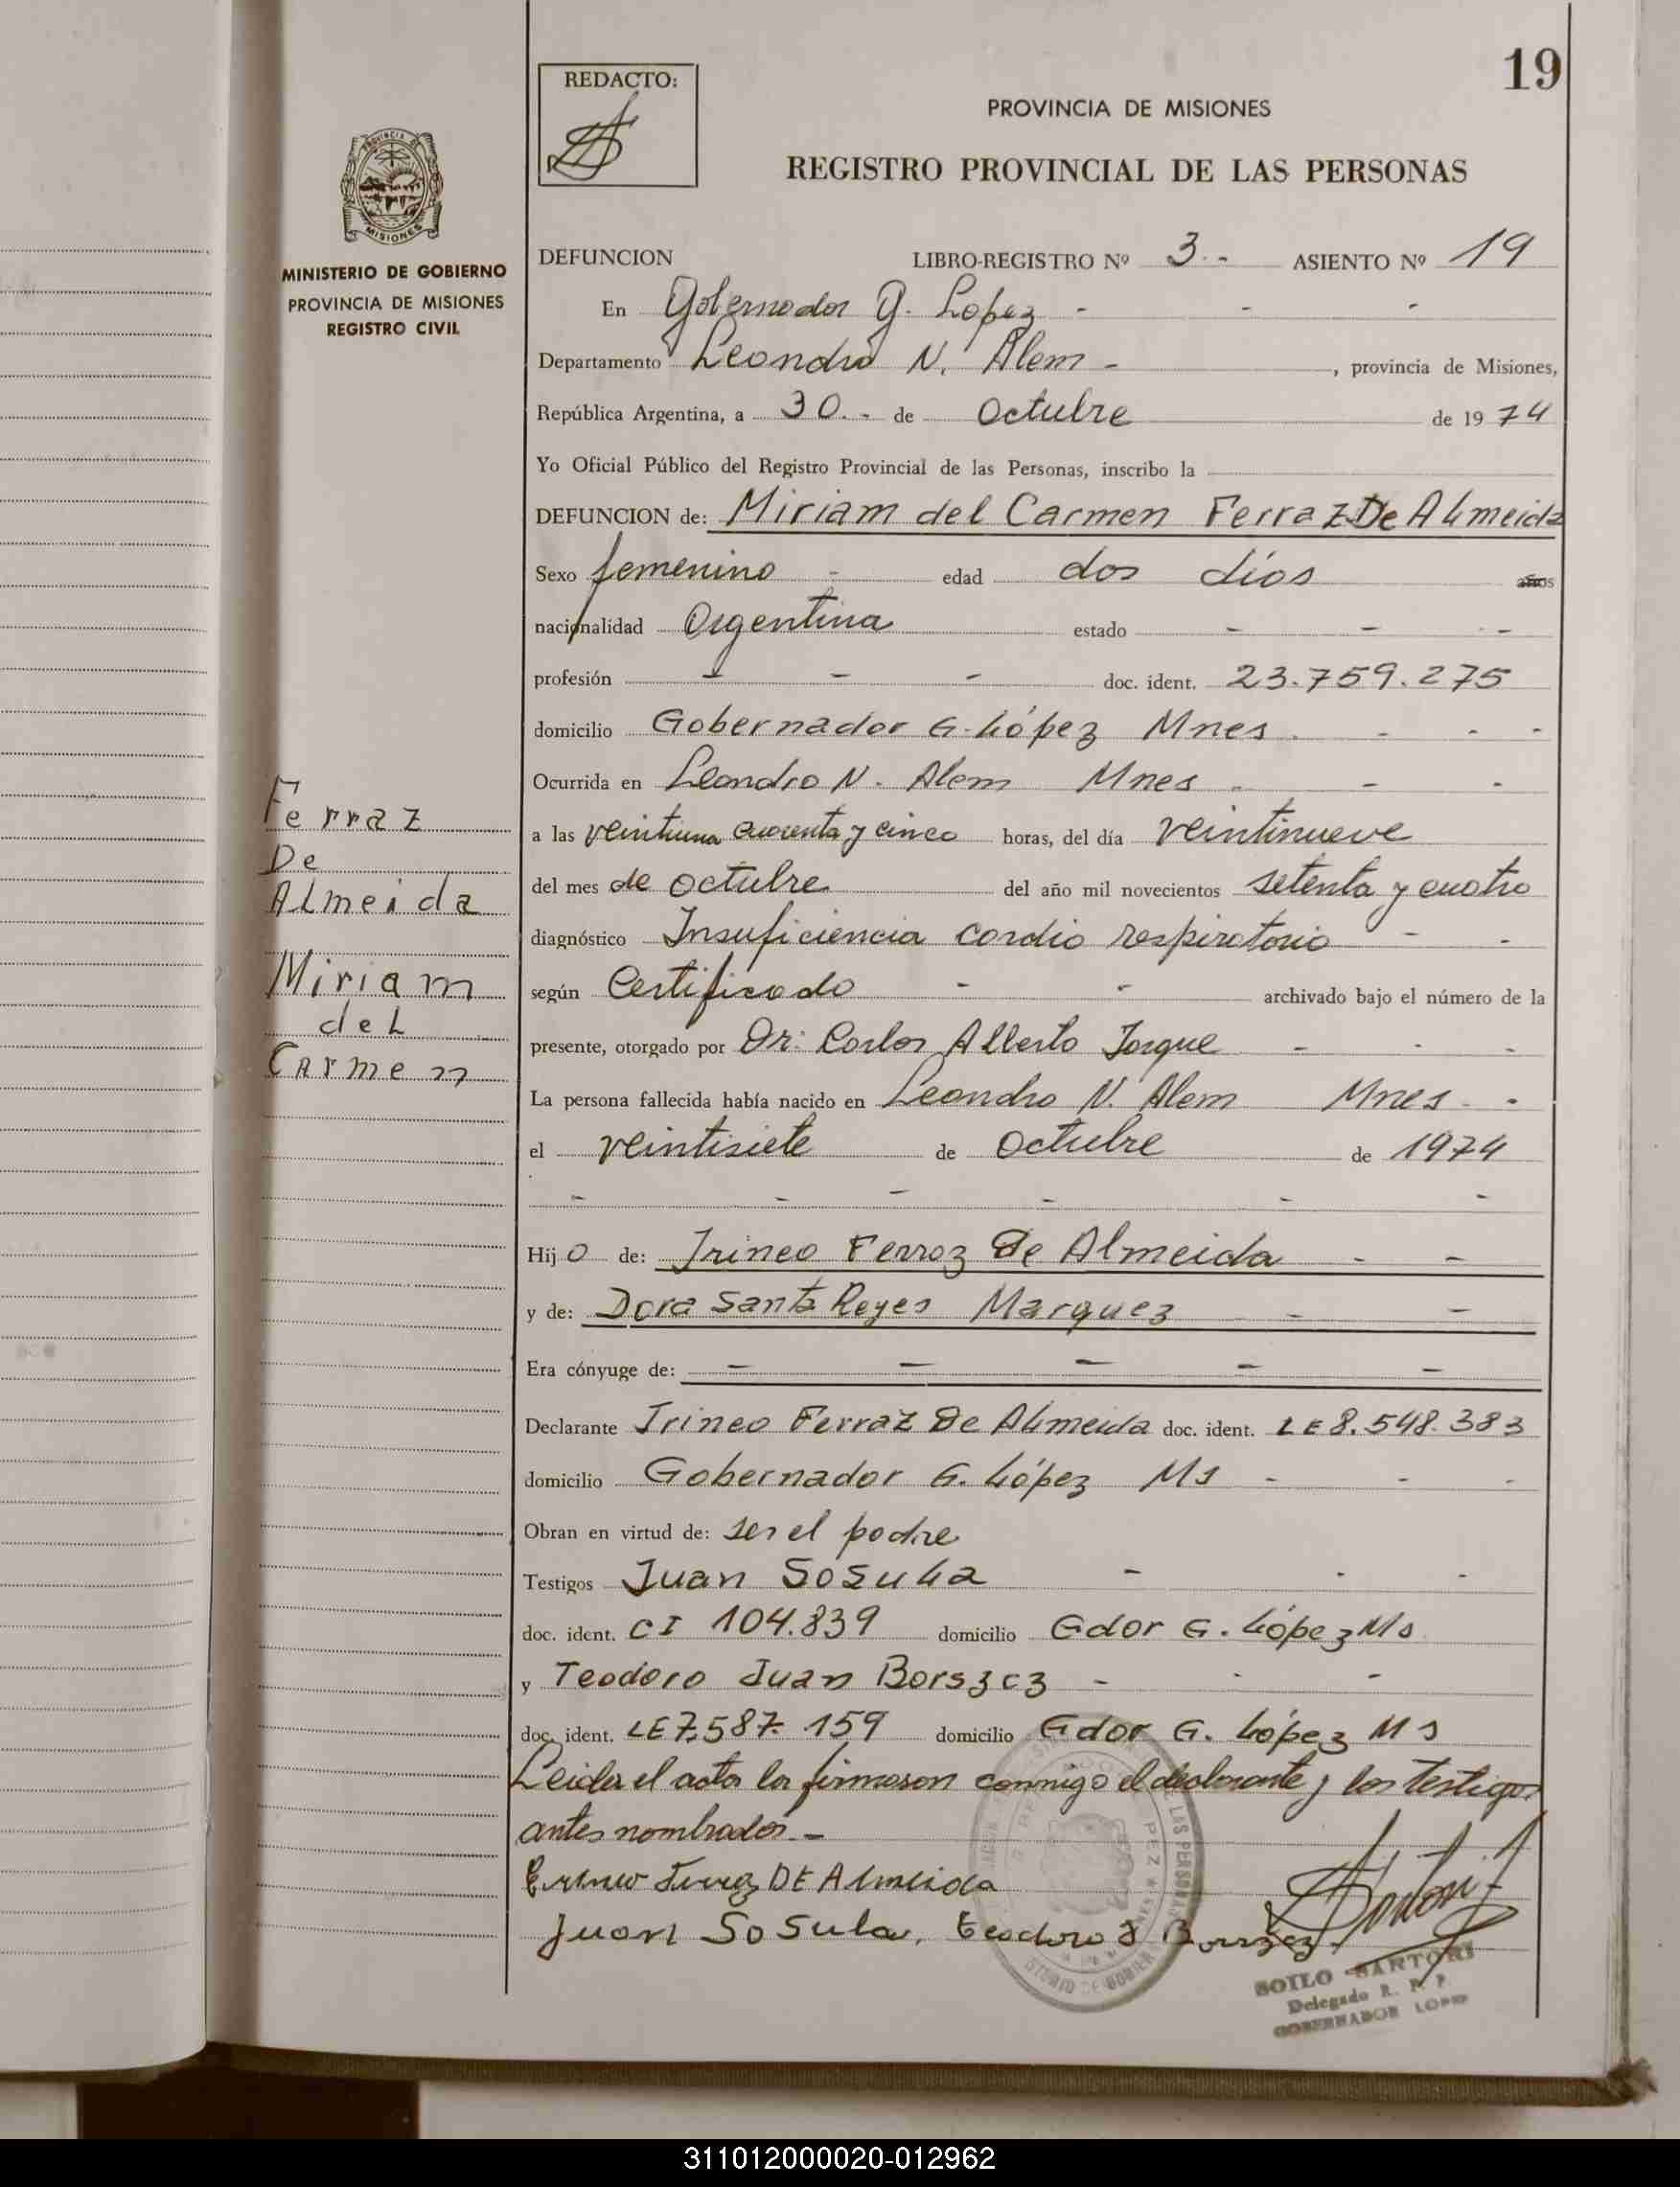 19
REDACTO:
PROVINCIA DE MISIONES
REGISTRO PROVINCIAL DE LAS PERSONAS
PROVINCIA DE
MISIONES
MINISTERIO DE GOBIERNO
PROVINCIA DE MISIONES
REGISTRO CIVIL
DEFUNCION LIBRO-REGISTRO Nº 3.- ASIENTO Nº 19
En Gobernador G. Lopez - - -
Departamento Leandro N. Alem - , provincia de Misiones,
República Argentina, a 30.- de Octubre de 1974
Yo Oficial Público del Registro Provincial de las Personas, inscribo la
DEFUNCION de: Miriam del Carmen Ferraz De Almeida
Sexo femenino - edad dos días años
nacionalidad Argentina estado - - -
profesión - - - doc. ident. 23.759.275
domicilio Gobernador G. López Mnes. - - -
Ocurrida en Leandro N. Alem Mnes - - -
a las veintiuna cuarenta y cinco horas, del día veintinueve
del mes de octubre del año mil novecientos setenta y cuatro
diagnóstico Insuficiencia cardio respiratoria - -
según Certificado - - archivado bajo el número de la
presente, otorgado por Dr: Carlos Alberto Jorque - - -
La persona fallecida había nacido en Leandro N. Alem Mnes - -
el veintisiete de Octubre de 1974
- - - - - -
Hijo de: Irineo Ferraz De Almeida - -
y de: Dora Santa Reyes Marquez - -
Era cónyuge de: - - - - -
Declarante Irineo Ferraz De Almeida doc. ident. LE 8.548.383
domicilio Gobernador G. López Ms - - -
Obran en virtud de: ser el padre
Testigos Juan Sosula - - -
doc. ident. CI 104.839 domicilio Gdor G. López Ms
y Teodoro Juan Borszcz - - -
doc. ident. LE 7.587.159 domicilio Gdor G. López Ms
Leida el acta la firmaron conmigo el declarante y los testigos
antes nombrados.-
DE Almeida
Juan Sosula, Teodoro J
SOILO SARTORI
Delegado R. P. P.
GOBERNADOR LOPEZ
Ferraz
De
Almeida
Miriam
del
Carmen
311012000020-012962